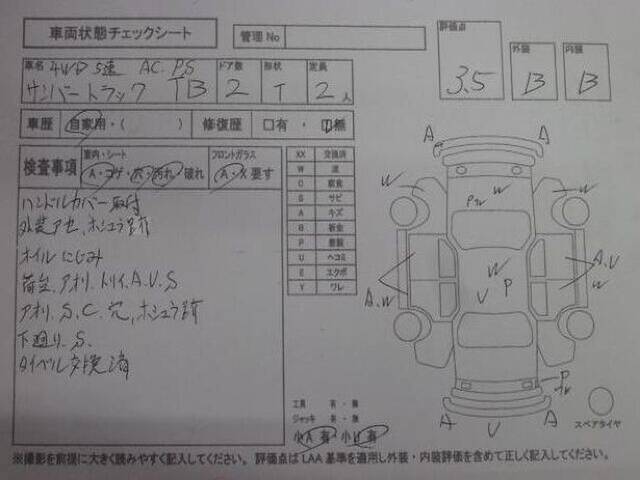 車両状態チェックシート
管理No
評価点
3.5
外装
B
内装
B
車名 4WD 5速 AC.PS
サンバートラック TB
ドア数
2
形状
T
定員
2人
車歴 自家用・( )
修復歴 □有・□無
検査事項
室内・シート
A・コゲ・穴・汚れ・破れ
フロントガラス
A・X要す
ハンドルカバー取付
外装アセ、ホシュウ跡
オイルにじみ
荷台、アオリ、トリイ、A.U.S
アオリ、S.C.穴、ホシュウ跡
下廻り、S.
タイベル交換済
XX 交換済
W 波
C 腐食
S サビ
A キズ
B 板金
P 塗装
U ヘコミ
E エクボ
Y ワレ
A A
W W
W
PW
A.W
W
U P
A.U
W
P
PW
A U A
工具 有・無
ジャッキ 有・無
小A有 小U有
スペアタイヤ
※撮影を前提に大きく読みやすく記入してください。評価点はLAA基準を適用し外装・内装評価を含めて正しく記入してください。